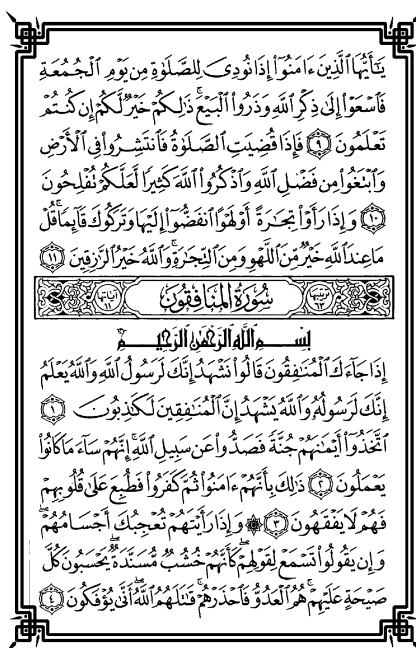 يَـٰٓأَيُّهَا ٱلَّذِينَ ءَامَنُوٓا۟ إِذَا نُودِىَ لِلصَّلَوٰةِ مِن يَوْمِ ٱلْجُمُعَةِ
فَٱسْعَوْا۟ إِلَىٰ ذِكْرِ ٱللَّهِ وَذَرُوا۟ ٱلْبَيْعَ ۚ ذَٰلِكُمْ خَيْرٌ لَّكُمْ إِن كُنتُمْ
تَعْلَمُونَ ٩ فَإِذَا قُضِيَتِ ٱلصَّلَوٰةُ فَٱنتَشِرُوا۟ فِى ٱلْأَرْضِ
وَٱبْتَغُوا۟ مِن فَضْلِ ٱللَّهِ وَٱذْكُرُوا۟ ٱللَّهَ كَثِيرًا لَّعَلَّكُمْ تُفْلِحُونَ
١٠ وَإِذَا رَأَوْا۟ تِجَـٰرَةً أَوْ لَهْوًا ٱنفَضُّوٓا۟ إِلَيْهَا وَتَرَكُوكَ قَآئِمًا ۚ قُلْ
مَا عِندَ ٱللَّهِ خَيْرٌ مِّنَ ٱللَّهْوِ وَمِنَ ٱلتِّجَـٰرَةِ ۚ وَٱللَّهُ خَيْرُ ٱلرَّٰزِقِينَ ١١
ترتيبها ٦٣ سُورَةُ المُنَافِقُون آياتها ١١
بِسْمِ ٱللَّهِ ٱلرَّحْمَـٰنِ ٱلرَّحِيمِ
إِذَا جَآءَكَ ٱلْمُنَـٰفِقُونَ قَالُوا۟ نَشْهَدُ إِنَّكَ لَرَسُولُ ٱللَّهِ ۗ وَٱللَّهُ يَعْلَمُ
إِنَّكَ لَرَسُولُهُۥ وَٱللَّهُ يَشْهَدُ إِنَّ ٱلْمُنَـٰفِقِينَ لَكَـٰذِبُونَ ١
ٱتَّخَذُوٓا۟ أَيْمَـٰنَهُمْ جُنَّةً فَصَدُّوا۟ عَن سَبِيلِ ٱللَّهِ ۚ إِنَّهُمْ سَآءَ مَا كَانُوا۟
يَعْمَلُونَ ٢ ذَٰلِكَ بِأَنَّهُمْ ءَامَنُوا۟ ثُمَّ كَفَرُوا۟ فَطُبِعَ عَلَىٰ قُلُوبِهِمْ
فَهُمْ لَا يَفْقَهُونَ ٣ ۞ وَإِذَا رَأَيْتَهُمْ تُعْجِبُكَ أَجْسَامُهُمْ ۖ
وَإِن يَقُولُوا۟ تَسْمَعْ لِقَوْلِهِمْ ۖ كَأَنَّهُمْ خُشُبٌ مُّسَنَّدَةٌ ۖ يَحْسَبُونَ كُلَّ
صَيْحَةٍ عَلَيْهِمْ ۚ هُمُ ٱلْعَدُوُّ فَٱحْذَرْهُمْ ۚ قَـٰتَلَهُمُ ٱللَّهُ ۖ أَنَّىٰ يُؤْفَكُونَ ٤